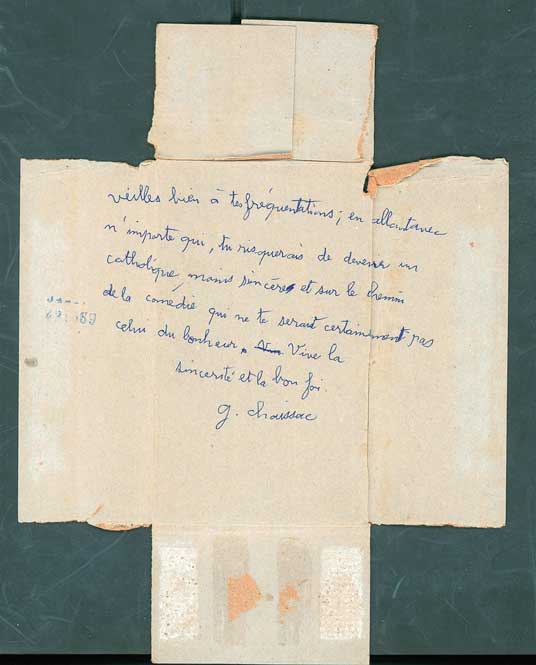 veilles bien à tes fréquentations; en allant avec
n'importe qui, tu risquerais de devenir un
catholique moins sincère et sur le chemin
de la comédie qui ne te serait certainement pas
celui du bonheur. Vive la
sincerité et la bon foi.
g. chaissac